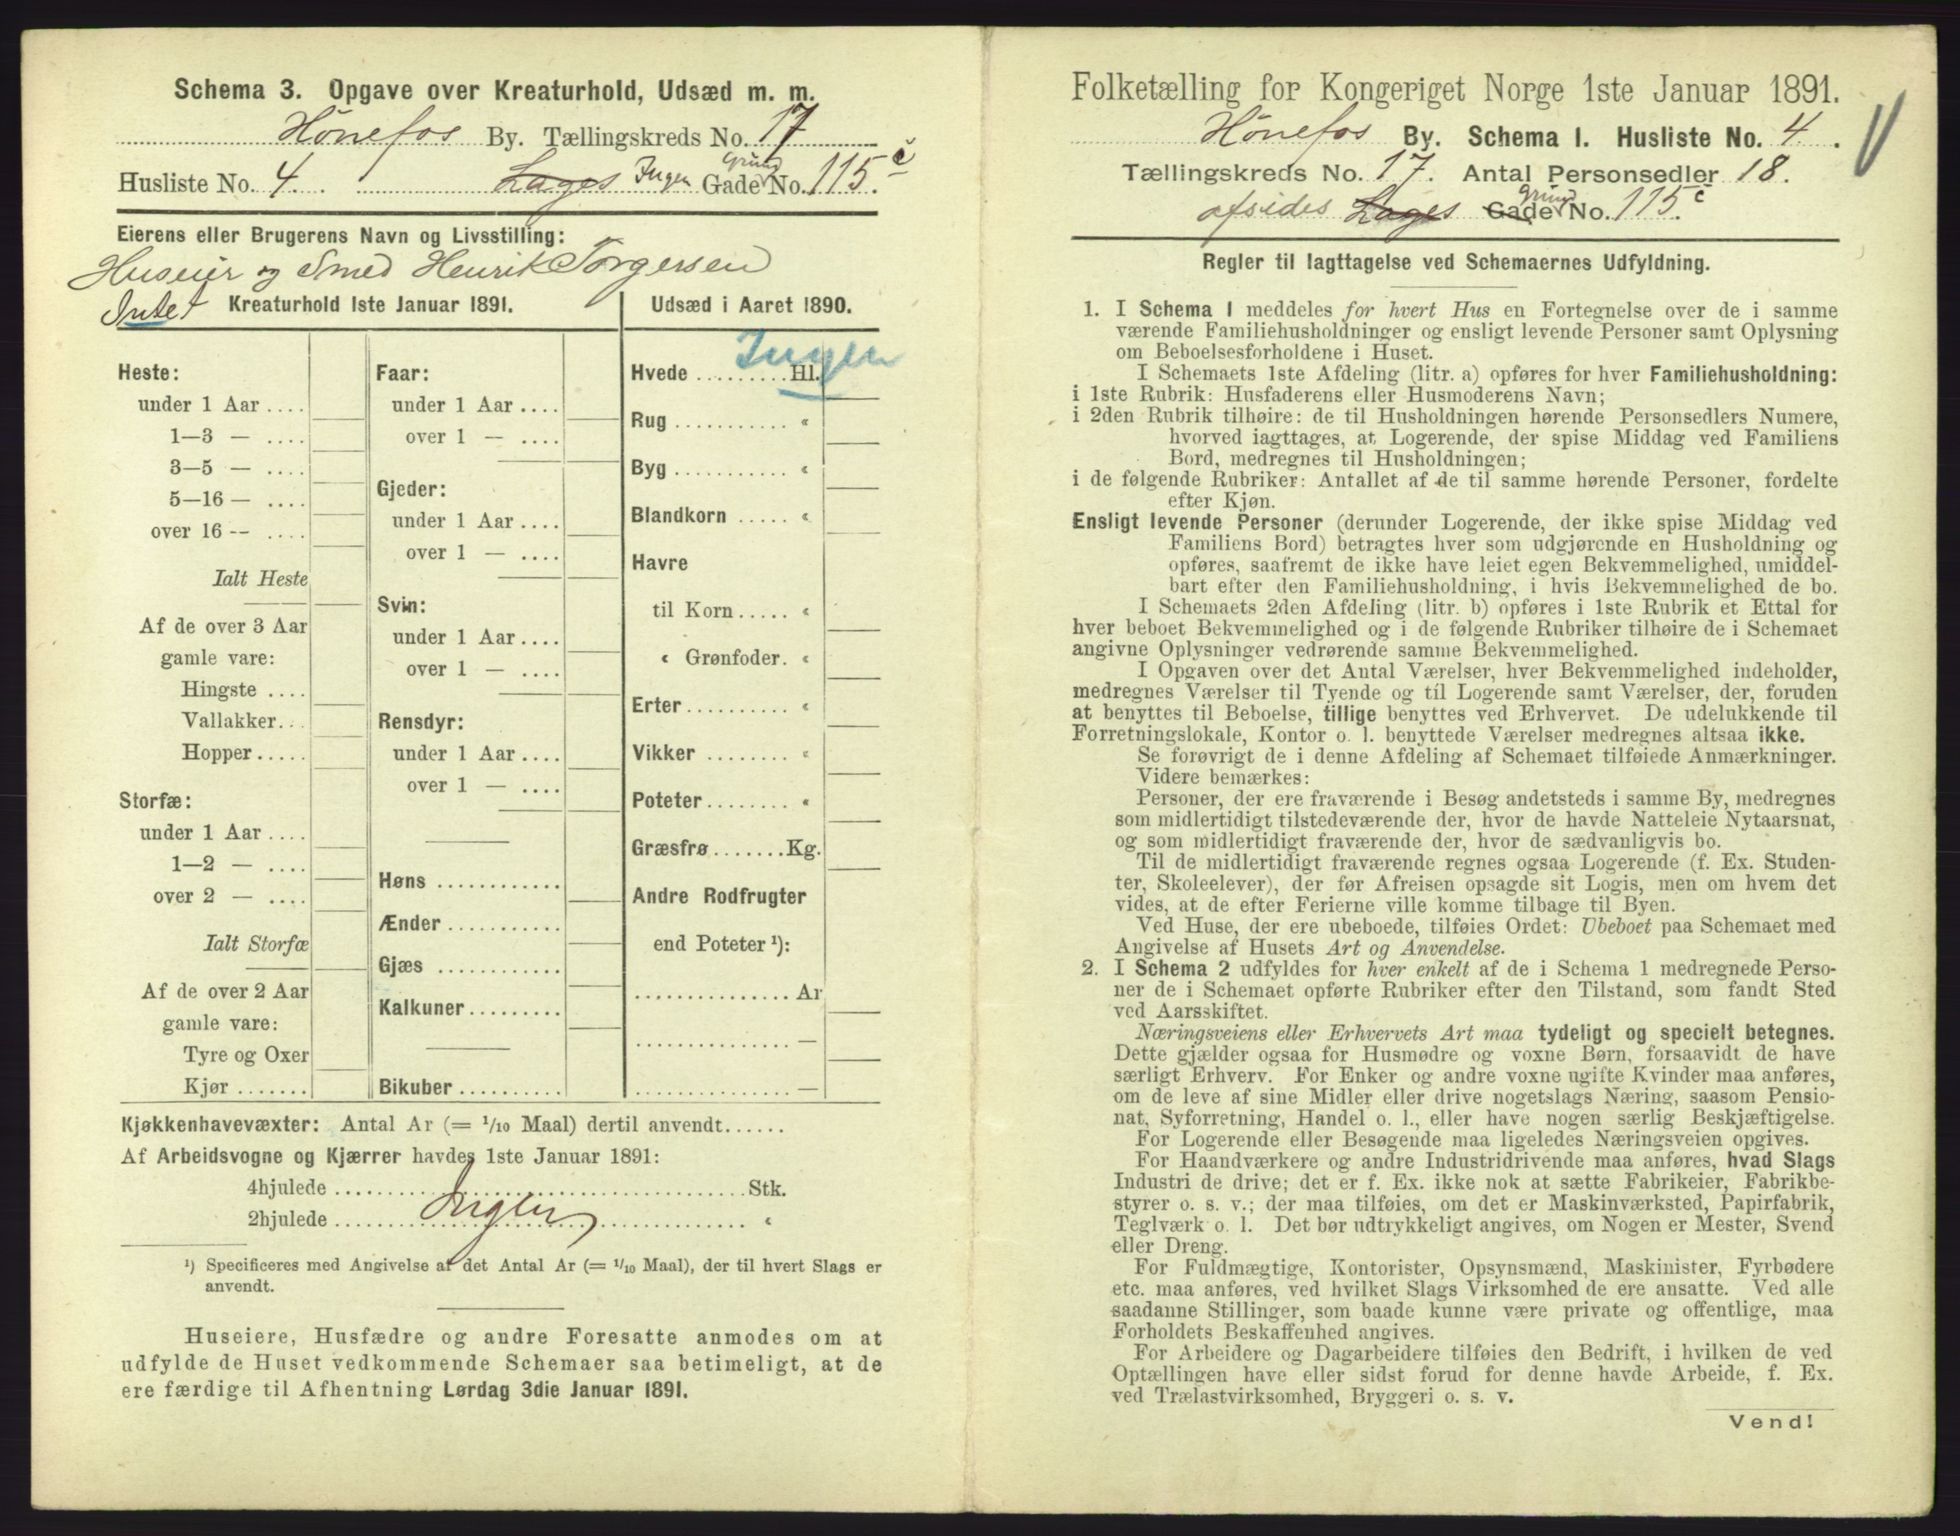 Schema 3. Opgave over Kreaturhold, Udsæd m. m.
Hønefos By. Tællingskreds No. 17
Husliste No. 4. Lages Ingen Gade Grund No. 115 c
Eierens eller Brugerens Navn og Livsstilling:
Huseier og Smed Henrik Torgersen
Intet Kreaturhold 1ste Januar 1891.
Heste:
under 1 Aar ....
1—3 — ....
3—5 — ....
5—16 — ....
over 16 — ....
Ialt Heste
Af de over 3 Aar
gamle vare:
Hingste ....
Vallakker...
Hopper.....
Storfæ:
under 1 Aar ....
1—2 — ....
over 2 — ....
Ialt Storfæ
Af de over 2 Aar
gamle vare:
Tyre og Oxer
Kjør .......
Faar:
under 1 Aar ....
over 1 — ....
Gjeder:
under 1 Aar ....
over 1 — ....
Svin:
under 1 Aar ....
over 1 — ....
Rensdyr:
under 1 Aar ....
over 1 — ....
Høns ............
Ænder ...........
Gjæs ............
Kalkuner .........
Bikuber ..........
Udsæd i Aaret 1890.
Ingen
Hvede ......... Hl.
Rug ........... «
Byg ........... «
Blandkorn ..... «
Havre
til Korn ..... «
« Grønfoder. «
Erter .......... «
Vikker ........ «
Poteter ........ «
Græsfrø ....... Kg.
Andre Rodfrugter
end Poteter ¹):
............... Ar
............... —
............... —
Kjøkkenhavevæxter: Antal Ar (= 1/10 Maal) dertil anvendt......
Af Arbeidsvogne og Kjærrer havdes 1ste Januar 1891:
4hjulede ........................ Stk.
2hjulede ........................ «
Ingen
¹) Specificeres med Angivelse af det Antal Ar (= 1/10 Maal), der til hvert Slags er
anvendt.
Huseiere, Husfædre og andre Foresatte anmodes om at
udfylde de Huset vedkommende Schemaer saa betimeligt, at de
ere færdige til Afhentning Lørdag 3die Januar 1891.
Folketælling for Kongeriget Norge 1ste Januar 1891.
Hønefos By. Schema 1. Husliste No. 4.
Tællingskreds No. 17. Antal Personsedler 18.
afsides Lages Gade Grund No. 115 c
Regler til Iagttagelse ved Schemaernes Udfyldning.
1. I Schema 1 meddeles for hvert Hus en Fortegnelse over de i samme
værende Familiehusholdninger og ensligt levende Personer samt Oplysning
om Beboelsesforholdene i Huset.
I Schemaets 1ste Afdeling (litr. a) opføres for hver Familiehusholdning:
i 1ste Rubrik: Husfaderens eller Husmoderens Navn;
i 2den Rubrik tilhøire: de til Husholdningen hørende Personsedlers Numere,
hvorved iagttages, at Logerende, der spise Middag ved Familiens
Bord, medregnes til Husholdningen;
i de følgende Rubriker: Antallet af de til samme hørende Personer, fordelte
efter Kjøn.
Ensligt levende Personer (derunder Logerende, der ikke spise Middag ved
Familiens Bord) betragtes hver som udgjørende en Husholdning og
opføres, saafremt de ikke have leiet egen Bekvemmelighed, umiddel-
bart efter den Familiehusholdning, i hvis Bekvemmelighed de bo.
I Schemaets 2den Afdeling (litr. b) opføres i 1ste Rubrik et Ettal for
hver beboet Bekvemmelighed og i de følgende Rubriker tilhøire de i Schemaet
angivne Oplysninger vedrørende samme Bekvemmelighed.
I Opgaven over det Antal Værelser, hver Bekvemmelighed indeholder,
medregnes Værelser til Tyende og til Logerende samt Værelser, der, foruden
at benyttes til Beboelse, tillige benyttes ved Erhvervet. De udelukkende til
Forretningslokale, Kontor o. l. benyttede Værelser medregnes altsaa ikke.
Se forøvrigt de i denne Afdeling af Schemaet tilføiede Anmærkninger.
Videre bemærkes:
Personer, der ere fraværende i Besøg andetsteds i samme By, medregnes
som midlertidigt tilstedeværende der, hvor de havde Natteleie Nytaarsnat,
og som midlertidigt fraværende der, hvor de sædvanligvis bo.
Til de midlertidigt fraværende regnes ogsaa Logerende (f. Ex. Studen-
ter, Skoleelever), der før Afreisen opsagde sit Logis, men om hvem det
vides, at de efter Ferierne ville komme tilbage til Byen.
Ved Huse, der ere ubeboede, tilføies Ordet: Ubeboet paa Schemaet med
Angivelse af Husets Art og Anvendelse.
2. I Schema 2 udfyldes for hver enkelt af de i Schema 1 medregnede Perso-
ner de i Schemaet opførte Rubriker efter den Tilstand, som fandt Sted
ved Aarsskiftet.
Næringsveiens eller Erhvervets Art maa tydeligt og specielt betegnes.
Dette gjælder ogsaa for Husmødre og voxne Børn, forsaavidt de have
særligt Erhverv. For Enker og andre voxne ugifte Kvinder maa anføres,
om de leve af sine Midler eller drive nogetslags Næring, saasom Pensio-
nat, Syforretning, Handel o. l., eller have nogen særlig Beskjæftigelse.
For Logerende eller Besøgende maa ligeledes Næringsveien opgives.
For Haandværkere og andre Industridrivende maa anføres, hvad Slags
Industri de drive; det er f. Ex. ikke nok at sætte Fabrikeier, Fabrikbe-
styrer o. s. v.; der maa tilføies, om det er Maskinværksted, Papirfabrik,
Teglværk o. l. Det bør udtrykkeligt angives, om Nogen er Mester, Svend
eller Dreng.
For Fuldmægtige, Kontorister, Opsynsmænd, Maskinister, Fyrbødere
etc. maa anføres, ved hvilket Slags Virksomhed de ere ansatte. Ved alle
saadanne Stillinger, som baade kunne være private og offentlige, maa
Forholdets Beskaffenhed angives.
For Arbeidere og Dagarbeidere tilføies den Bedrift, i hvilken de ved
Optællingen have eller sidst forud for denne havde Arbeide, f. Ex.
ved Trælastvirksomhed, Bryggeri o. s. v.
Vend!